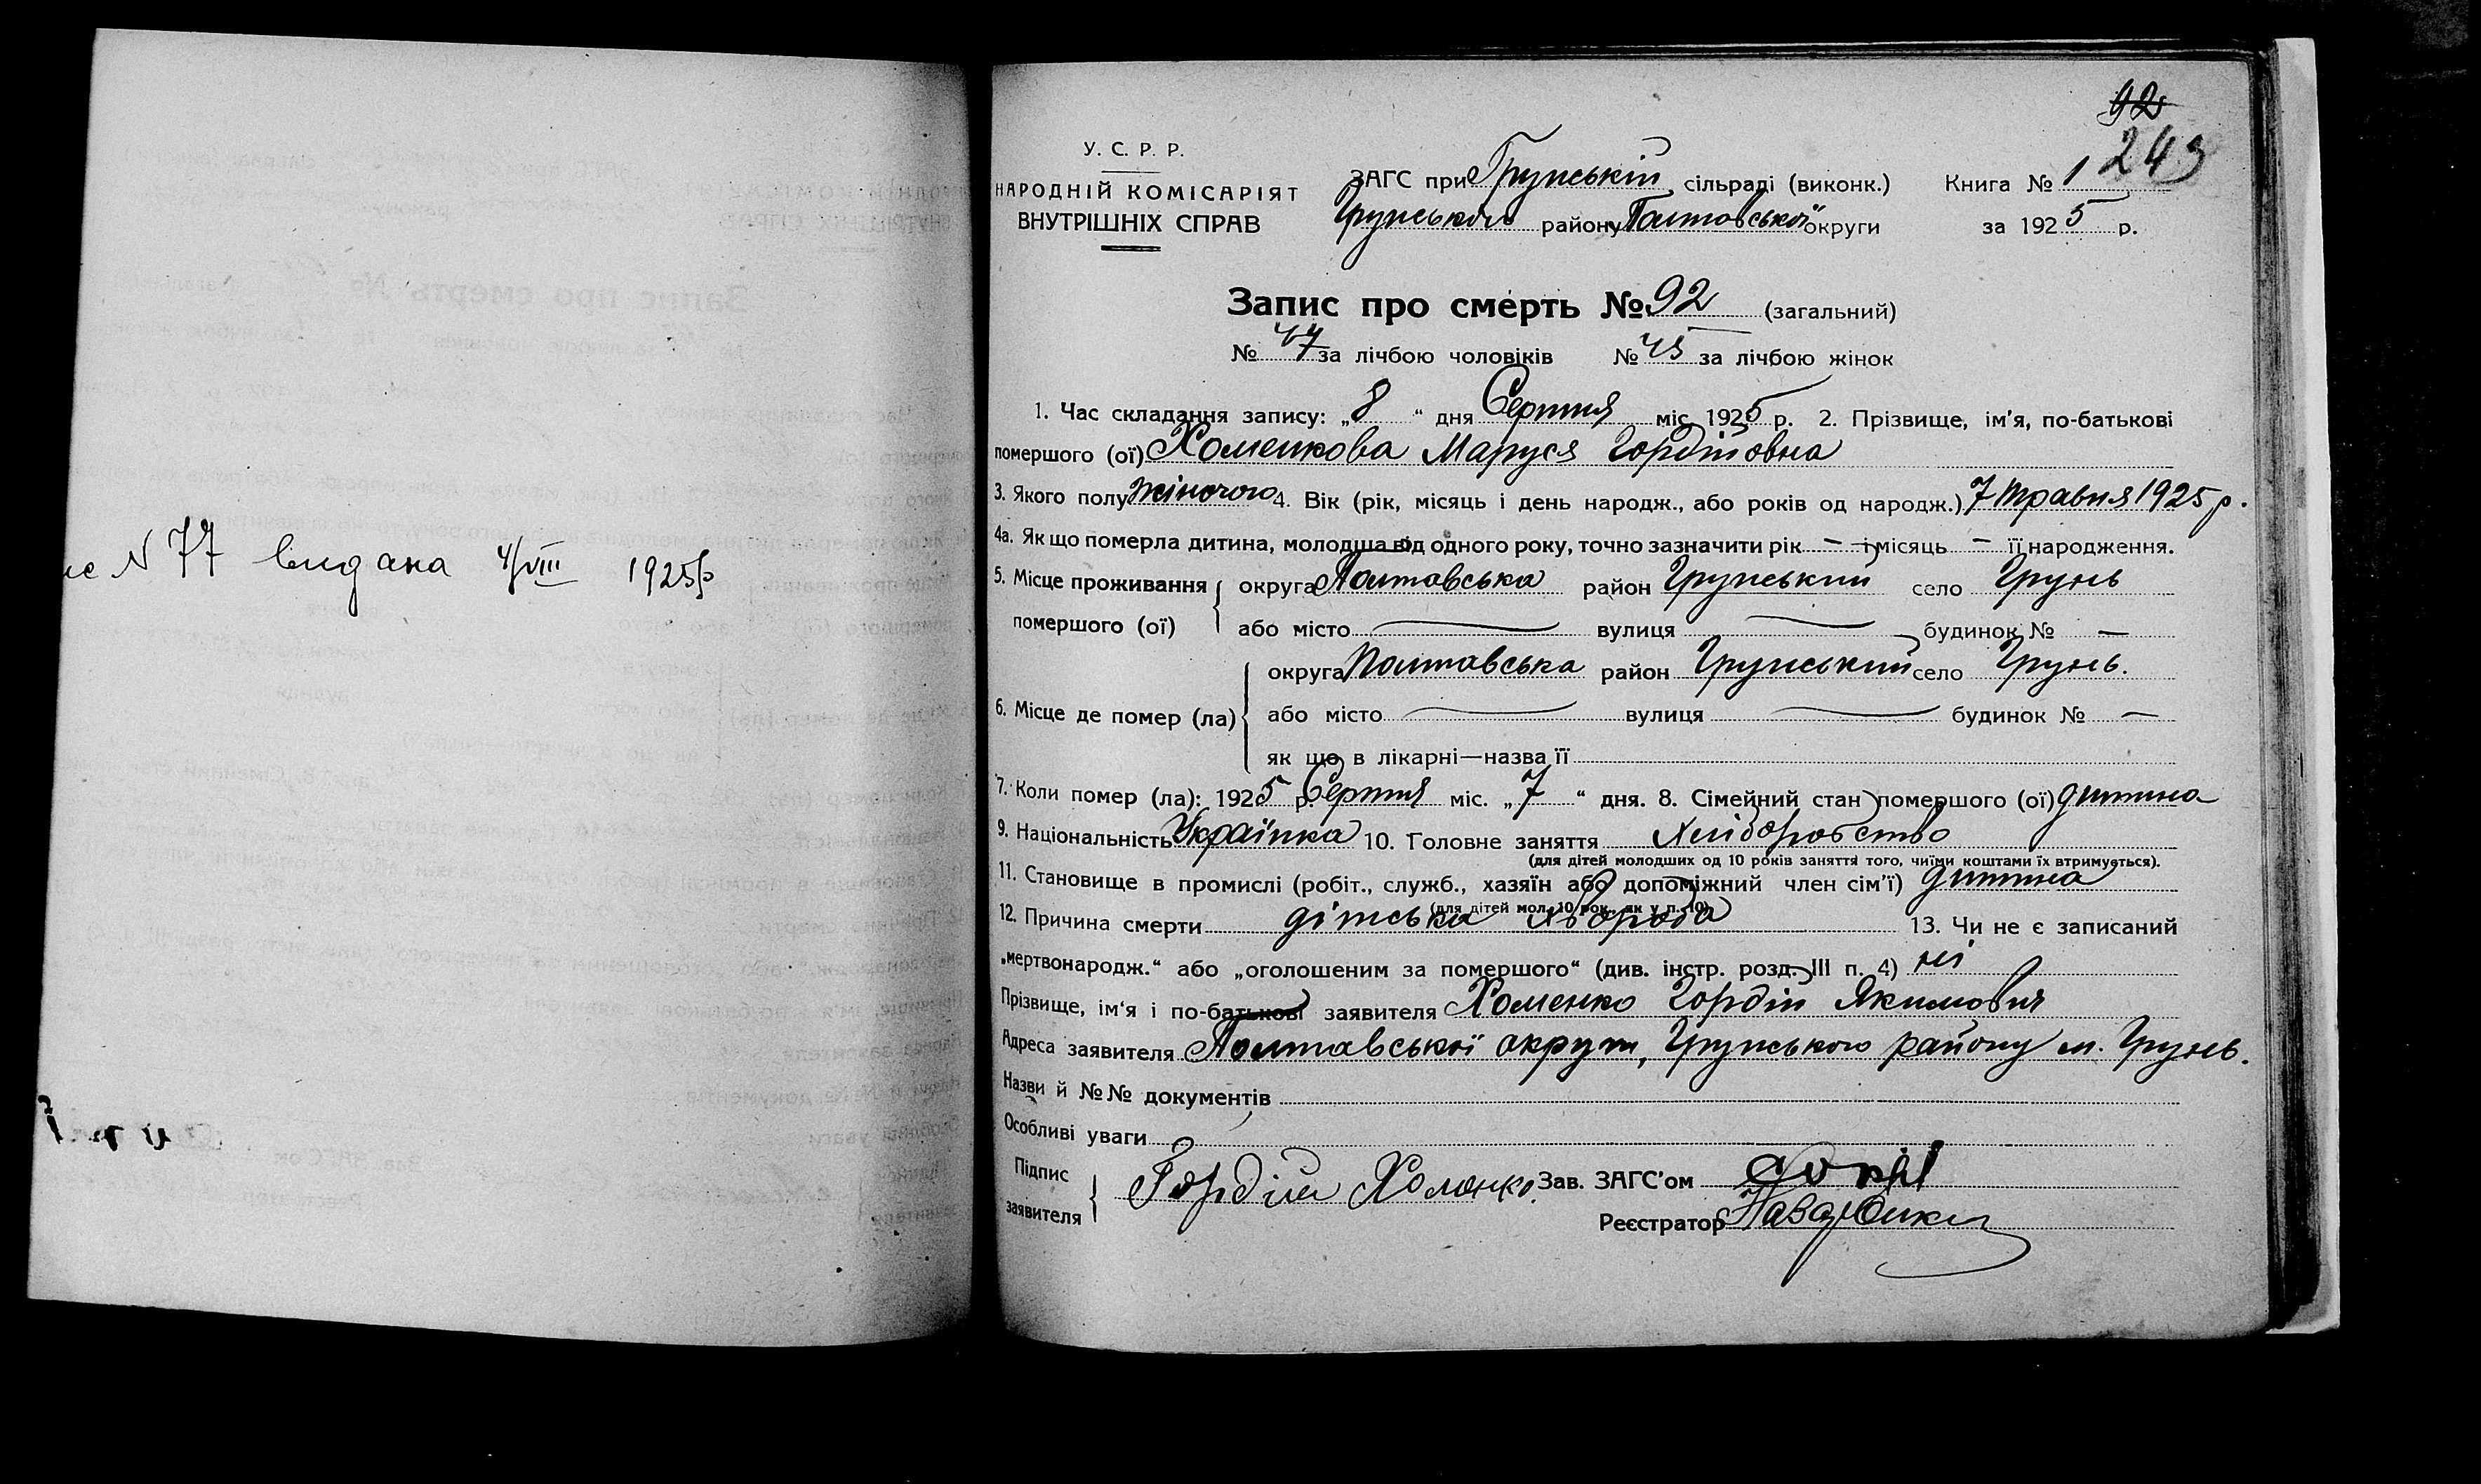 № 77 видана 4/VIII 1925р
92
243
У. С. Р. Р.
НАРОДНІЙ КОМІСАРІЯТ
ВНУТРІШНІХ СПРАВ
ЗАГС при Грунській сільраді (виконк.) Книга № 1
Грунського району Полтавської округи за 1925 р.
Запис про смерть № 92 (загальний)
№ 47 за лічбою чоловіків № 45 за лічбою жінок
1. Час складання запису: „8“ дня Серпня міс. 1925 р. 2. Прізвище, ім'я, по-батькові
помершого (ої) Хоменкова Маруся Гордійовна
3. Якого полу жіночого 4. Вік (рік, місяць і день народж., або років од народж.) 7 травня 1925 р.
4а. Як що померла дитина, молодша від одного року, точно зазначити рік — і місяць — її народження.
5. Місце проживання помершого (ої) { округа Полтавська район Грунський село Грунь
або місто — вулиця — будинок № —
6. Місце де помер (ла) { округа Полтавська район Грунський село Грунь.
або місто — вулиця — будинок № —
як що в лікарні—назва її
7. Коли помер (ла): 1925 р. Серпня міс. „7“ дня. 8. Сімейний стан помершого (ої) дитина
9. Національність Українка 10. Головне заняття Хліборобство
(для дітей молодших од 10 років заняття того, чиїми коштами їх втримується).
11. Становище в промислі (робіт., служб., хазяїн або допоміжний член сім'ї) дитина
(для дітей мол. 10 рок. як у п. 10)
12. Причина смерти дітська хвороба 13. Чи не є записаний
„мертвонародж.“ або „оголошеним за помершого“ (див. інстр. розд. III п. 4) ні
Прізвище, ім'я і по-батькові заявителя Хоменко Гордій Якимович
Адреса заявителя Полтавської округи, Грунського району м. Грунь.
Назви й №№ документів
Особливі уваги
Підпис заявителя } Гордій Хоменко Зав. ЗАГС'ом
Реєстратор